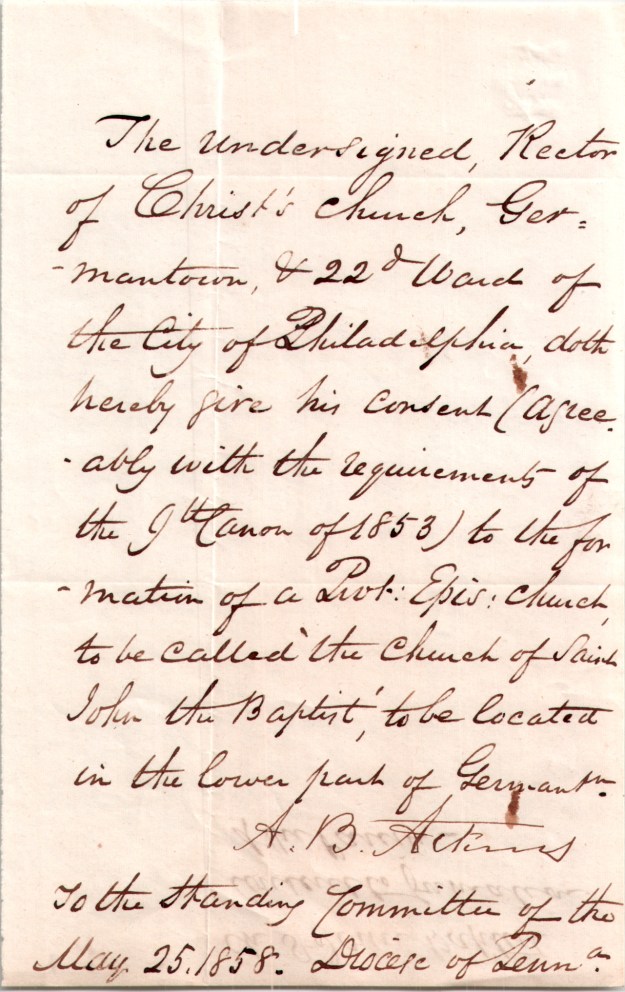 The undersigned, Rector
of Christ's church, Ger=
-mantown, & 22d Ward of
the City of Philadelphia, doth
hereby give his consent (agree-
-ably with the requirements of
the 9th Canon of 1853) to the for
-mation of a Prot: Epis: church,
to be called 'the Church of Saint
John the Baptist', to be located
in the lower part of Germantn.
A. B. Atkins
To the Standing Committee of the
May 25. 1858. Diocese of Penna.